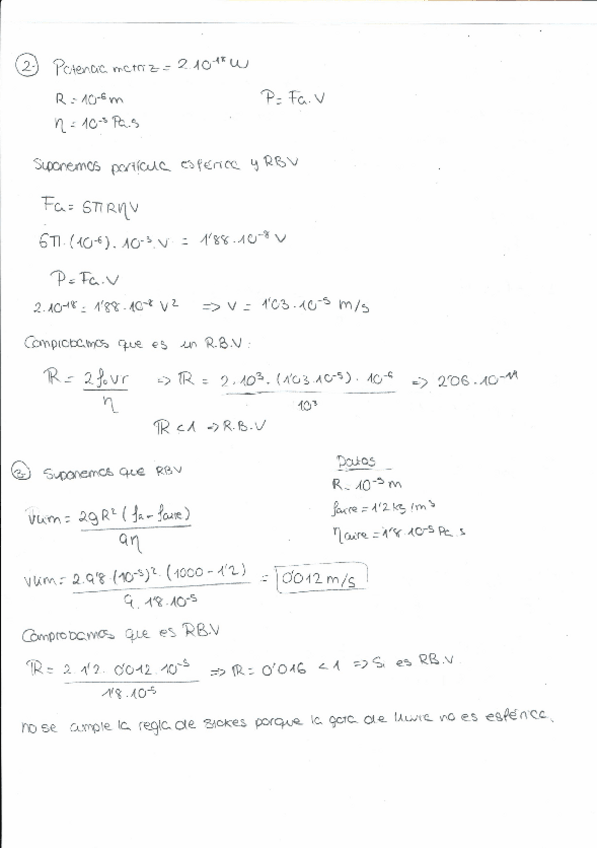 2. Potencia motriz = 2·10⁻¹⁸ W
R = 10⁻⁶ m P = Fa·V
η = 10⁻³ Pa·s
Suponemos partícula esférica y RBV
Fa = 6πRηV
6π·(10⁻⁶)·10⁻³·V = 1'88·10⁻⁸ V
P = Fa·V
2·10⁻¹⁸ = 1'88·10⁻⁸ V² => V = 1'03·10⁻⁵ m/s
Comprobamos que es un R.B.V:
R = 2ρ₀vr / η => R = 2·10³·(1'03·10⁻⁵)·10⁻⁶ / 10³ => 2'06·10⁻¹¹
R < 1 => R.B.V
3. Suponemos que RBV
Datos
R = 10⁻⁵ m
ρaire = 1'2 kg/m³
ηaire = 1'8·10⁻⁵ Pa·s
vlim = 2gR²(ρa - ρaire) / 9η
vlim = 2·9'8·(10⁻⁵)²·(1000 - 1'2) / 9·1'8·10⁻⁵ = 0'012 m/s
Comprobamos que es RBV
R = 2·1'2·0'012·10⁻⁵ / 1'8·10⁻⁵ => R = 0'016 < 1 => Si es RBV
no se cumple la regla de Stokes porque la gota de lluvia no es esférica.